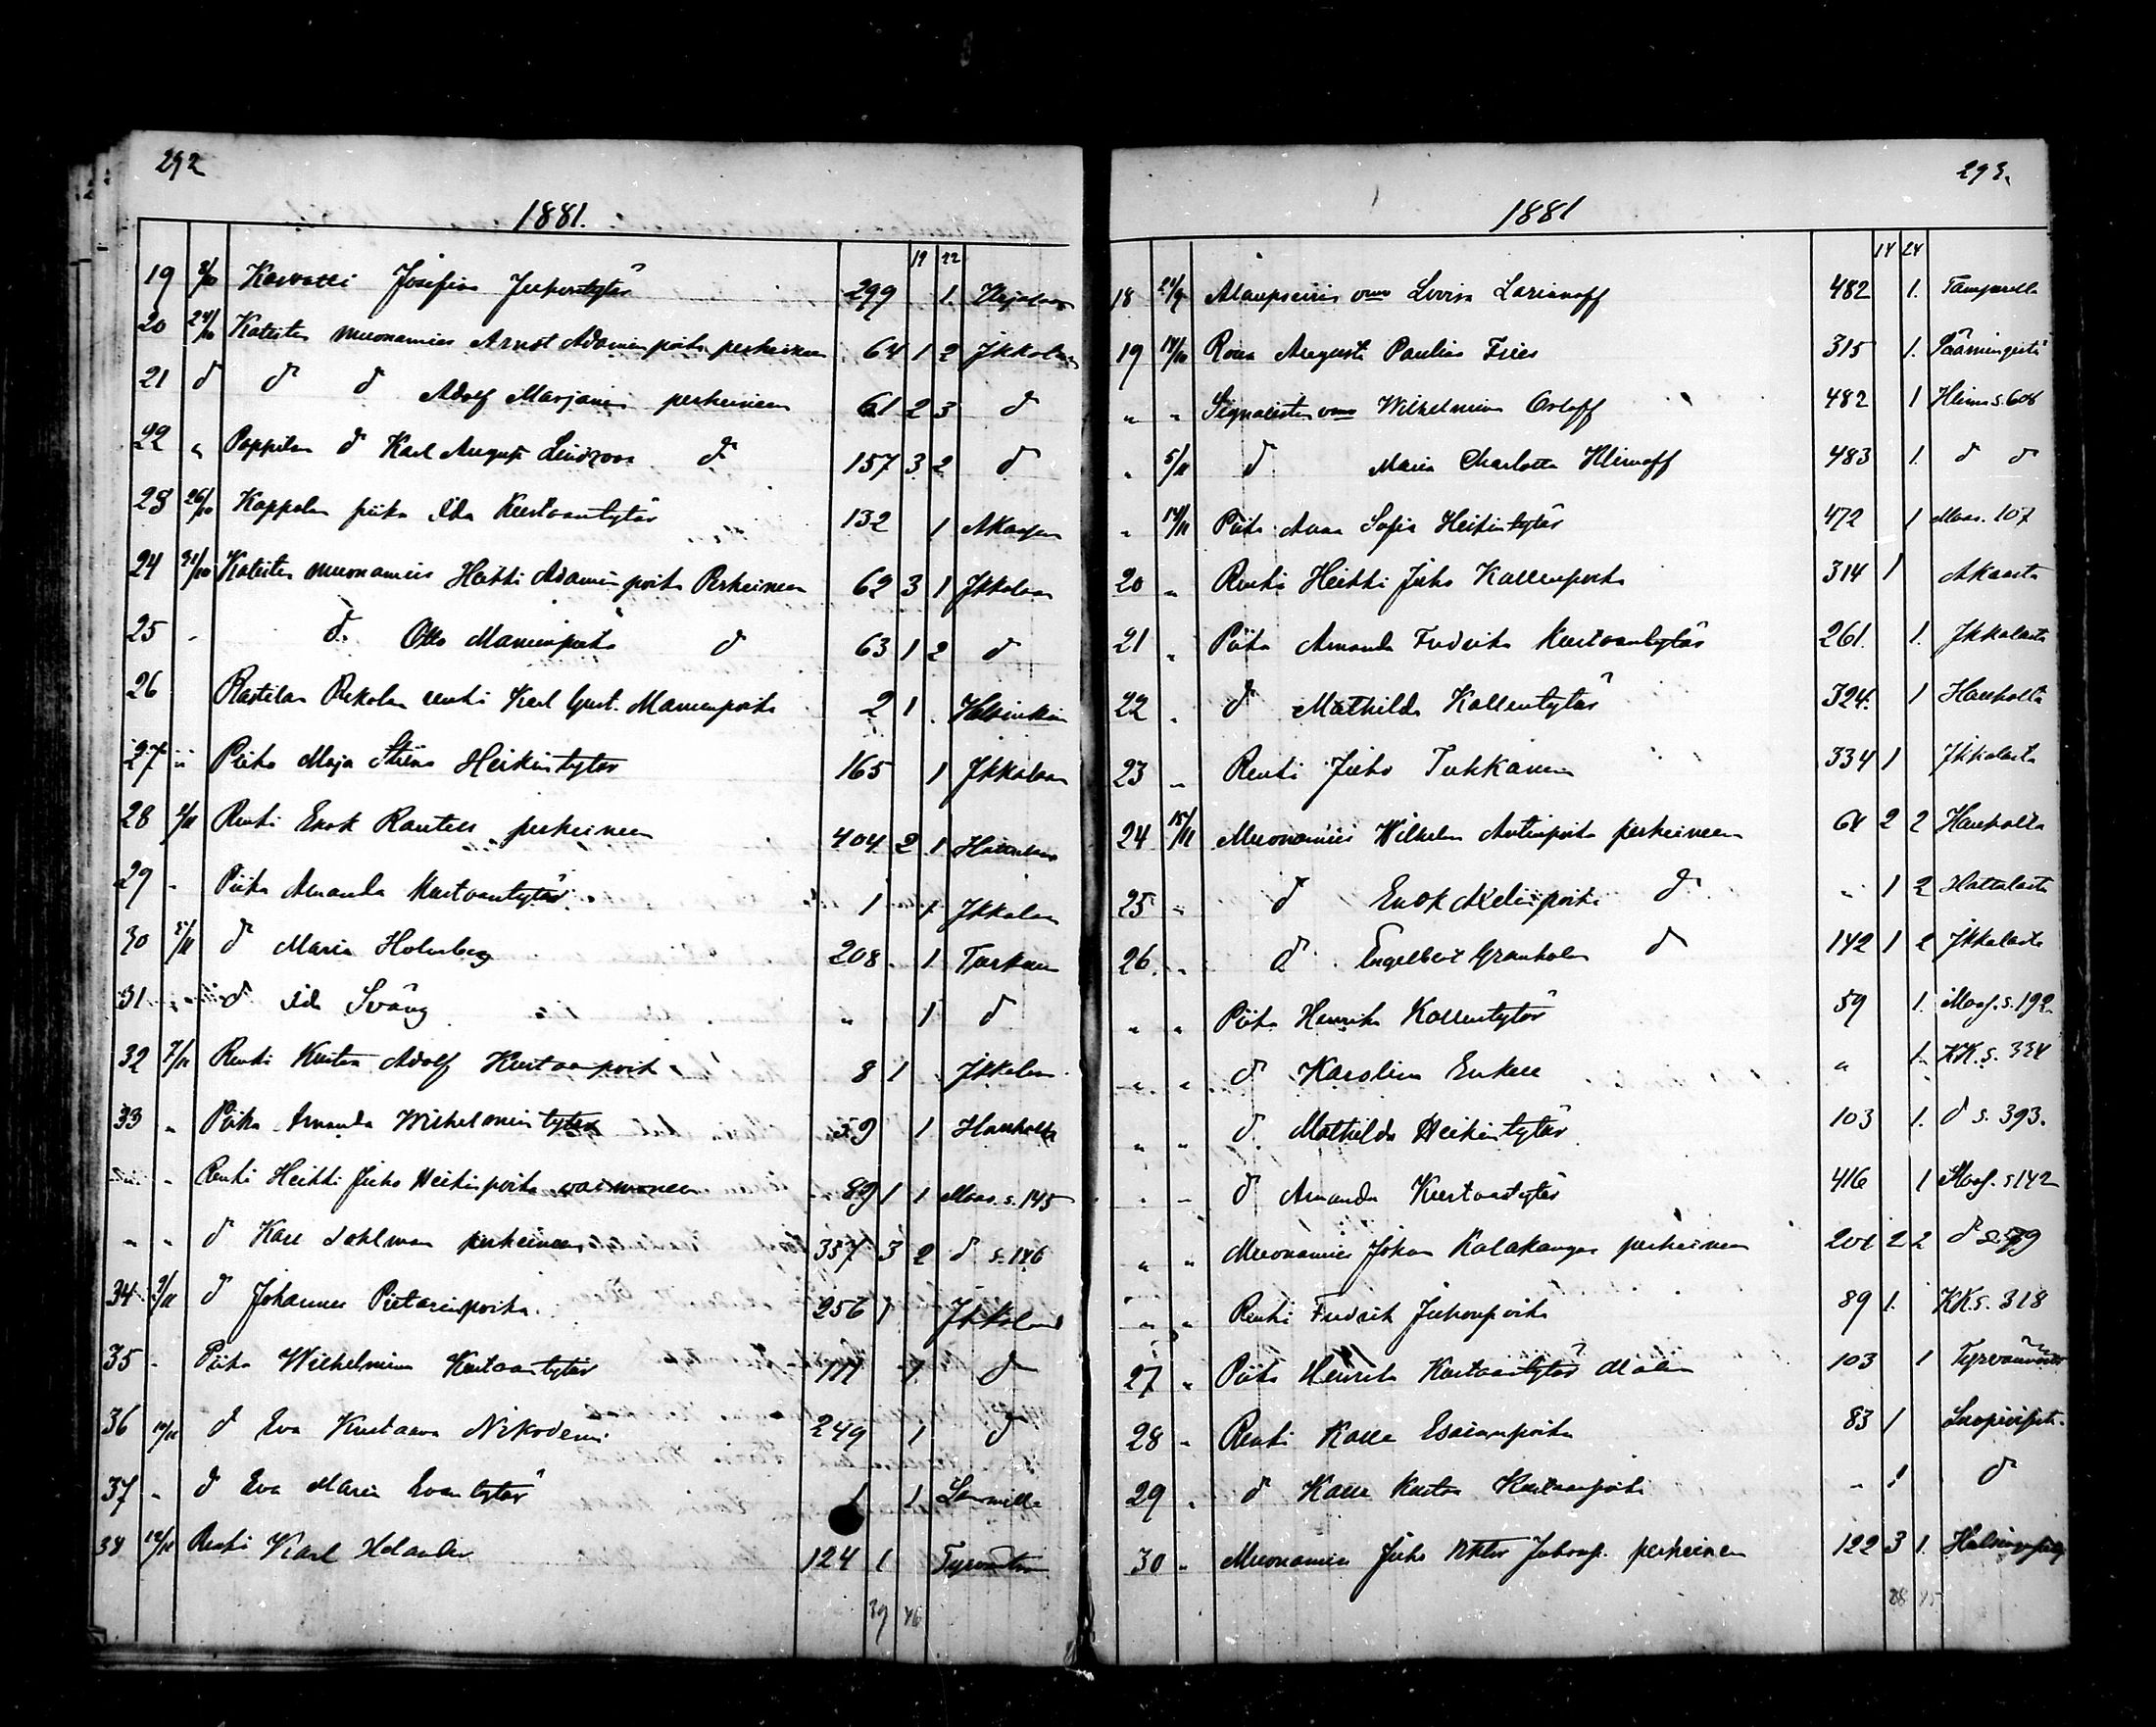 292
1881.
19 22
19 8/10 Josefina Juhontytär 299 1.
20 24/10 muonamies Arnst Adaminpoika perheineen 64 1 2 Jkkolan
21 d d d Adolf Marjanp. perheineen 61 2 3 d
22 " Pappilan d Karl August Lindroos d 157 3 2 d
23 26/10 Kappelan piika Ida Kustaantytär 132 1 Akaasen
24 31/10 muonamies Heikki Adaminpoika Perheineen 62 3 1 Jkkalaan
25 - d Otto Manunpoika d 63 1 2 d
26 Rastilan Pekolan renki Karl Gust. Manunpoika 2 1 Helsinkiin
27 " Piika Maja Stiina Heikintytär 165 1 Jkkalaan
28 2/11 Renki Enok Rantell perheineen 404 2 1
29 - Piika Amanda Kustaantytär 1 1 Jkkalaan
30 5/11 d Maria Holmberg 208 1 Turkuun
31 " d Ida Sväng " 1 d
32 7/11 Renki Kustaa Adolf Kustaanpoika 8 1 Jkkalaan
33 " Piika Amanda Wilhelmintytär 59 1 Hauholle
" - Renki Heikki Juho Heikinpoika vaimoneen 89 1 1 Maas. s. 145
" " d Karl Dahlman perheineen 337 3 2 d s. 146
34 9/11 d Johannes Pietarinpoika 256 1 Jkkalaan
35 - Piika Wilhelmina Kustaantytär 1 d
36 10/11 d Eva Kustaava Nikodemi 249 1 d
37 - d Eva Maria Evantytär 1 1
38 12/11 Renki Karl Helander 124 1
39 46
293.
1881
14 24
18 21/9 Lovisa Larianoff 482 1. Tampereelta
19 14/10 Rouva Augusta Paulina Fries 315 1. Säämingistä
" " Signalistin vmo Wilhelmina Orloff 482 1 Heim s. 608
" 5/11 d Maria Charlotta Klimoff 483 1. d d
" 14/11 Piika Anna Sofia Heikintytär 472 1 Maas. 107
20 " Renki Heikki Juho Kallenpoika 314 1 Akaasta
21 " Piika Amanda Fredrika Kustaantytär 261. 1. Jkkalasta
22 " d Mathilda Kallentytär 324. 1 Hauholta
23 " Renki Juho Tukkanen 334 1 Jkkalasta
24 15/11 Muonamies Wilhelm Antinpoika perheineen 64 2 2 Hauholta
25 " d Enok d " 1 2 Hattulasta
26. " d Engelbert Granholm d 142 1 2 Jkkalasta
" " Piika Henrika Kallentytär 59 1. Maas. s. 192
" " d Karolina Enkell " 1. KK. s. 334
" " d. Mathilda Heikintytär 103 1. d s. 393.
" - d Amanda Kustaantytär 416 1 Maas. s 142
" " Muonamies Johan Kalakangas perheineen 201 2 2 d
" " Renki Fredrik Juhonpoika 89 1. KK s. 318
27 " Piika Henrika Kustaantytär Malm 103 1
28 " Renki Kalle Esaianpoika 83 1
29 " d Kalle Kustaa Kustaanpoika " 1 d
30 " Muonamies Juho Viktor Juhonp. perheineen 122 3 1. Helsingistä
28 45